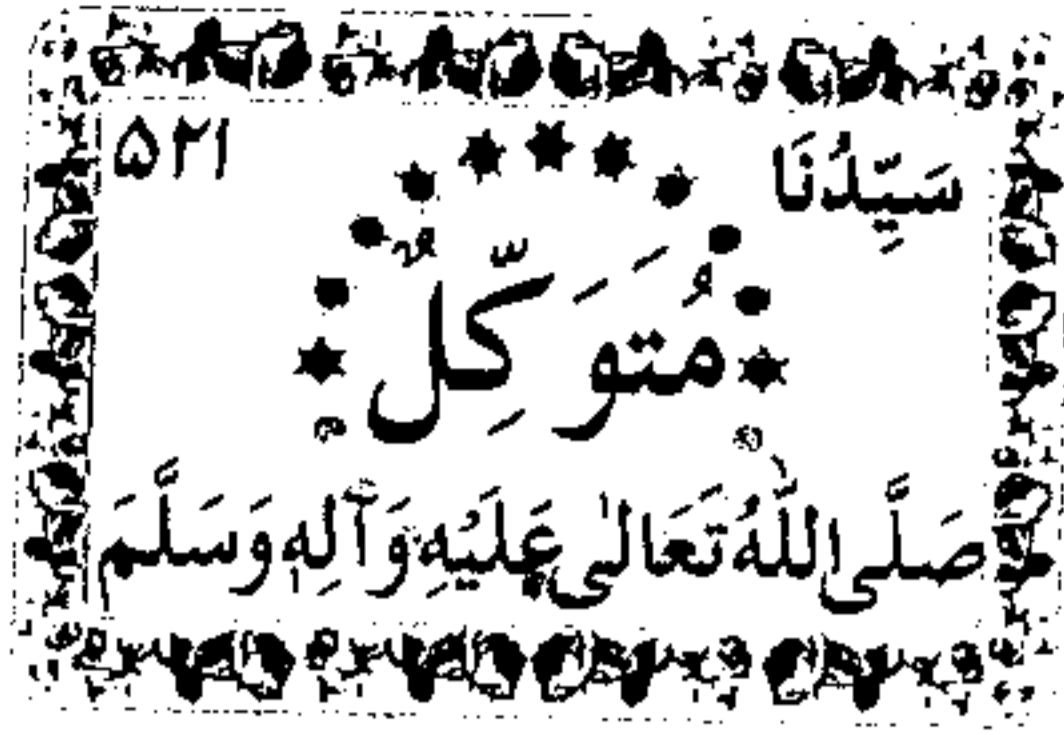 سَيِّدُنَا ۵۲۱
مُتَوَكِّلٌ
صَلَّى اللّٰهُ تَعَالىٰ عَلَيْهِ وَآلِهٖ وَسَلَّمَ